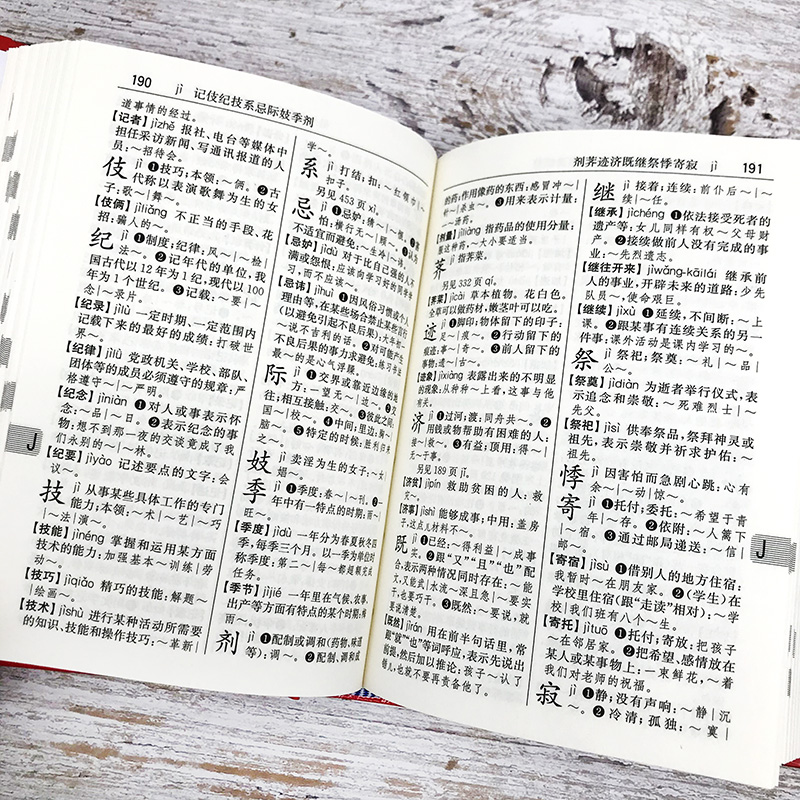 190 jì 记伎纪技系忌际妓季剂
道事情的经过。
【记者】jìzhě 报社、电台等媒体中
担任采访新闻、写通讯报道的人
员:~招待会。
伎 jì ❶技巧;本领:~俩。❷古
代称以表演歌舞为生的女
子:歌~|舞~。
【伎俩】jìliǎng 不正当的手段、花
招:骗人的~。
纪 jì ❶制度;纪律:风~|~检|
法~。❷记年代的单位,我
国古代以 12 年为 1 纪,现代以 100
年为 1 个世纪。❸记载:~要|
~念|~录片。
【纪录】jìlù 一定时期、一定范围内
记载下来的最好的成绩:打破世
界~。
【纪律】jìlǜ 党政机关、学校、部队、
团体等的成员必须遵守的规章:严
格遵守~|~严明。
【纪念】jìniàn ❶对人或事表示怀
念:~品|~日。❷表示纪念的事
物:想不到那一夜的交谈竟成了我
们永别的~|~林。
【纪要】jìyào 记述要点的文字:会
议~。
技 jì 从事某些具体工作的专门
能力;本领:~术|~艺|~巧
|~法|演~。
【技能】jìnéng 掌握和运用某方面
技术的能力:加强基本~训练|劳
动~。
【技巧】jìqiǎo 精巧的技能:解题~
|绘画~。
【技术】jìshù 进行某种活动所需要
的知识、技能和操作技巧:~革新|
学~。
系 jì 打结;扣:~红领巾|~
扣子。
另见 453 页 xì。
忌 jì ❶忌妒:猜~。❷
怕:横行无~|顾~。❸
不适宜而避免:~生冷|~口。
【忌妒】jìdù 对于比自己强的人不
满或怨恨:应该向学习好的同学学
习,而不应该~。
【忌讳】jìhuì ❶因风俗习惯或个人
理由等,在某些场合禁止某些言行
(以避免引起不良后果):大年初一
~说不吉利的话。❷对可能产生
不良后果的事力求避免:练习书法
最~的是心气浮躁。
际 jì ❶交界或靠近边缘的地
方:一望无~|边~。❷交
往;相互接触:交~。❸彼此之间:
国~|校~。❹中间;里边:胸~|
脑~。❺特定的时候:胜利归来
之~。
妓 jì 卖淫为生的女子:~女|
娼~。
季 jì ❶季度:春~|~刊。❷一
年中有一特点的时期:雨~|
旺~。
【季度】jìdù 一年分为春夏秋冬四
季,每季三个月。以一季为单位时
称季度:第二~|每~都超额完成
任务。
【季节】jìjié 一年里在气候、农事、
出产等方面有特点的某个时期:梅
雨~。
剂 jì ❶配制或调和(药物、味道
等):调~。❷配制、调和成
J
剂荠迹济既继祭悸寄寂 jì 191
的药;作用像药的东西:感冒冲~|
针~|杀虫~。❸用来表示计量:
一~汤药。
【剂量】jìliàng 指药品的使用分量:
服这种药,~大小要适当。
荠 jì 指荠菜。
另见 332 页 qí。
【荠菜】jìcài 草本植物。花白色。
全草可以做药材,嫩茎叶可以吃。
迹 jì ❶脚印;物体留下的印子:
足~|痕~。❷行动留下的
痕迹:事~|奇~。❸前人留下的
事物:遗~|古~。
【迹象】jìxiàng 表露出来的不明显
的现象:从种种~上看,这事与他
有关。
济 jì ❶过河;渡:同舟共~。❷
用钱或物帮助有困难的人:
接~|救~。❸有益;顶用:得~|
无~于事。
另见 189 页 jǐ。
【济贫】jìpín 救助贫困的人:救
灾~。
【济事】jìshì 能够成事;中用:盖房
子,这点儿材料不~。
既 jì ❶已经:~得利益|~成事
实。❷跟“又”“且”“也”配
合,表示两种情况同时存在:~能
文,又能武|水流~深且急|~要实
干,也要巧干。❸既然:~要说,就
要说清楚。
【既然】jìrán 用在前半句话里,常
跟“就”“也”等词呼应,表示先说出
前提,然后加以推论:孩子~认了
错儿,也就不要再责备他了。
继 jì 接着;连续:前仆后~|~
任。
【继承】jìchéng ❶依法接受死者的
遗产等:女儿同样有权~父母财
产。❷接续做前人没有完成的事
业:~先烈遗志。
【继往开来】jìwǎng-kāilái 继承前
人的事业,开辟未来的道路:少先
队员~,使命艰巨。
【继续】jìxù ❶延续,不间断:~上
课。❷跟某事有连续关系的另一
件事:课外活动是课内学习的~。
祭 jì ❶祭祀;祭奠:~礼|~品|
公~。
【祭奠】jìdiàn 为逝者举行仪式,表
示追念和崇敬:~死难烈士|~
先父。
【祭祀】jìsì 供奉祭品,祭拜神灵或
祖先,表示崇敬并祈求护佑:~
祖先。
悸 jì 因害怕而急剧心跳:心有
余~|~动|惊~。
寄 jì ❶托付;委托:~希望于青
年|~存。❷依附:~人篱下
|~宿。❸通过邮局递送:~信|
邮~。
【寄宿】jìsù ❶借别人的地方住宿:
我暂时~在朋友家。❷(学生)在
学校里住宿(跟“走读”相对):~学
校|我们班有八个~生。
【寄托】jìtuō ❶托付;寄放:把孩子
~在邻居家。❷把希望、感情放在
某人或某事物上:一束鲜花,~着
我们对老师的祝福。
寂 jì ❶静;没有声响:~静|沉
~。❷冷清;孤独:~寞|
J